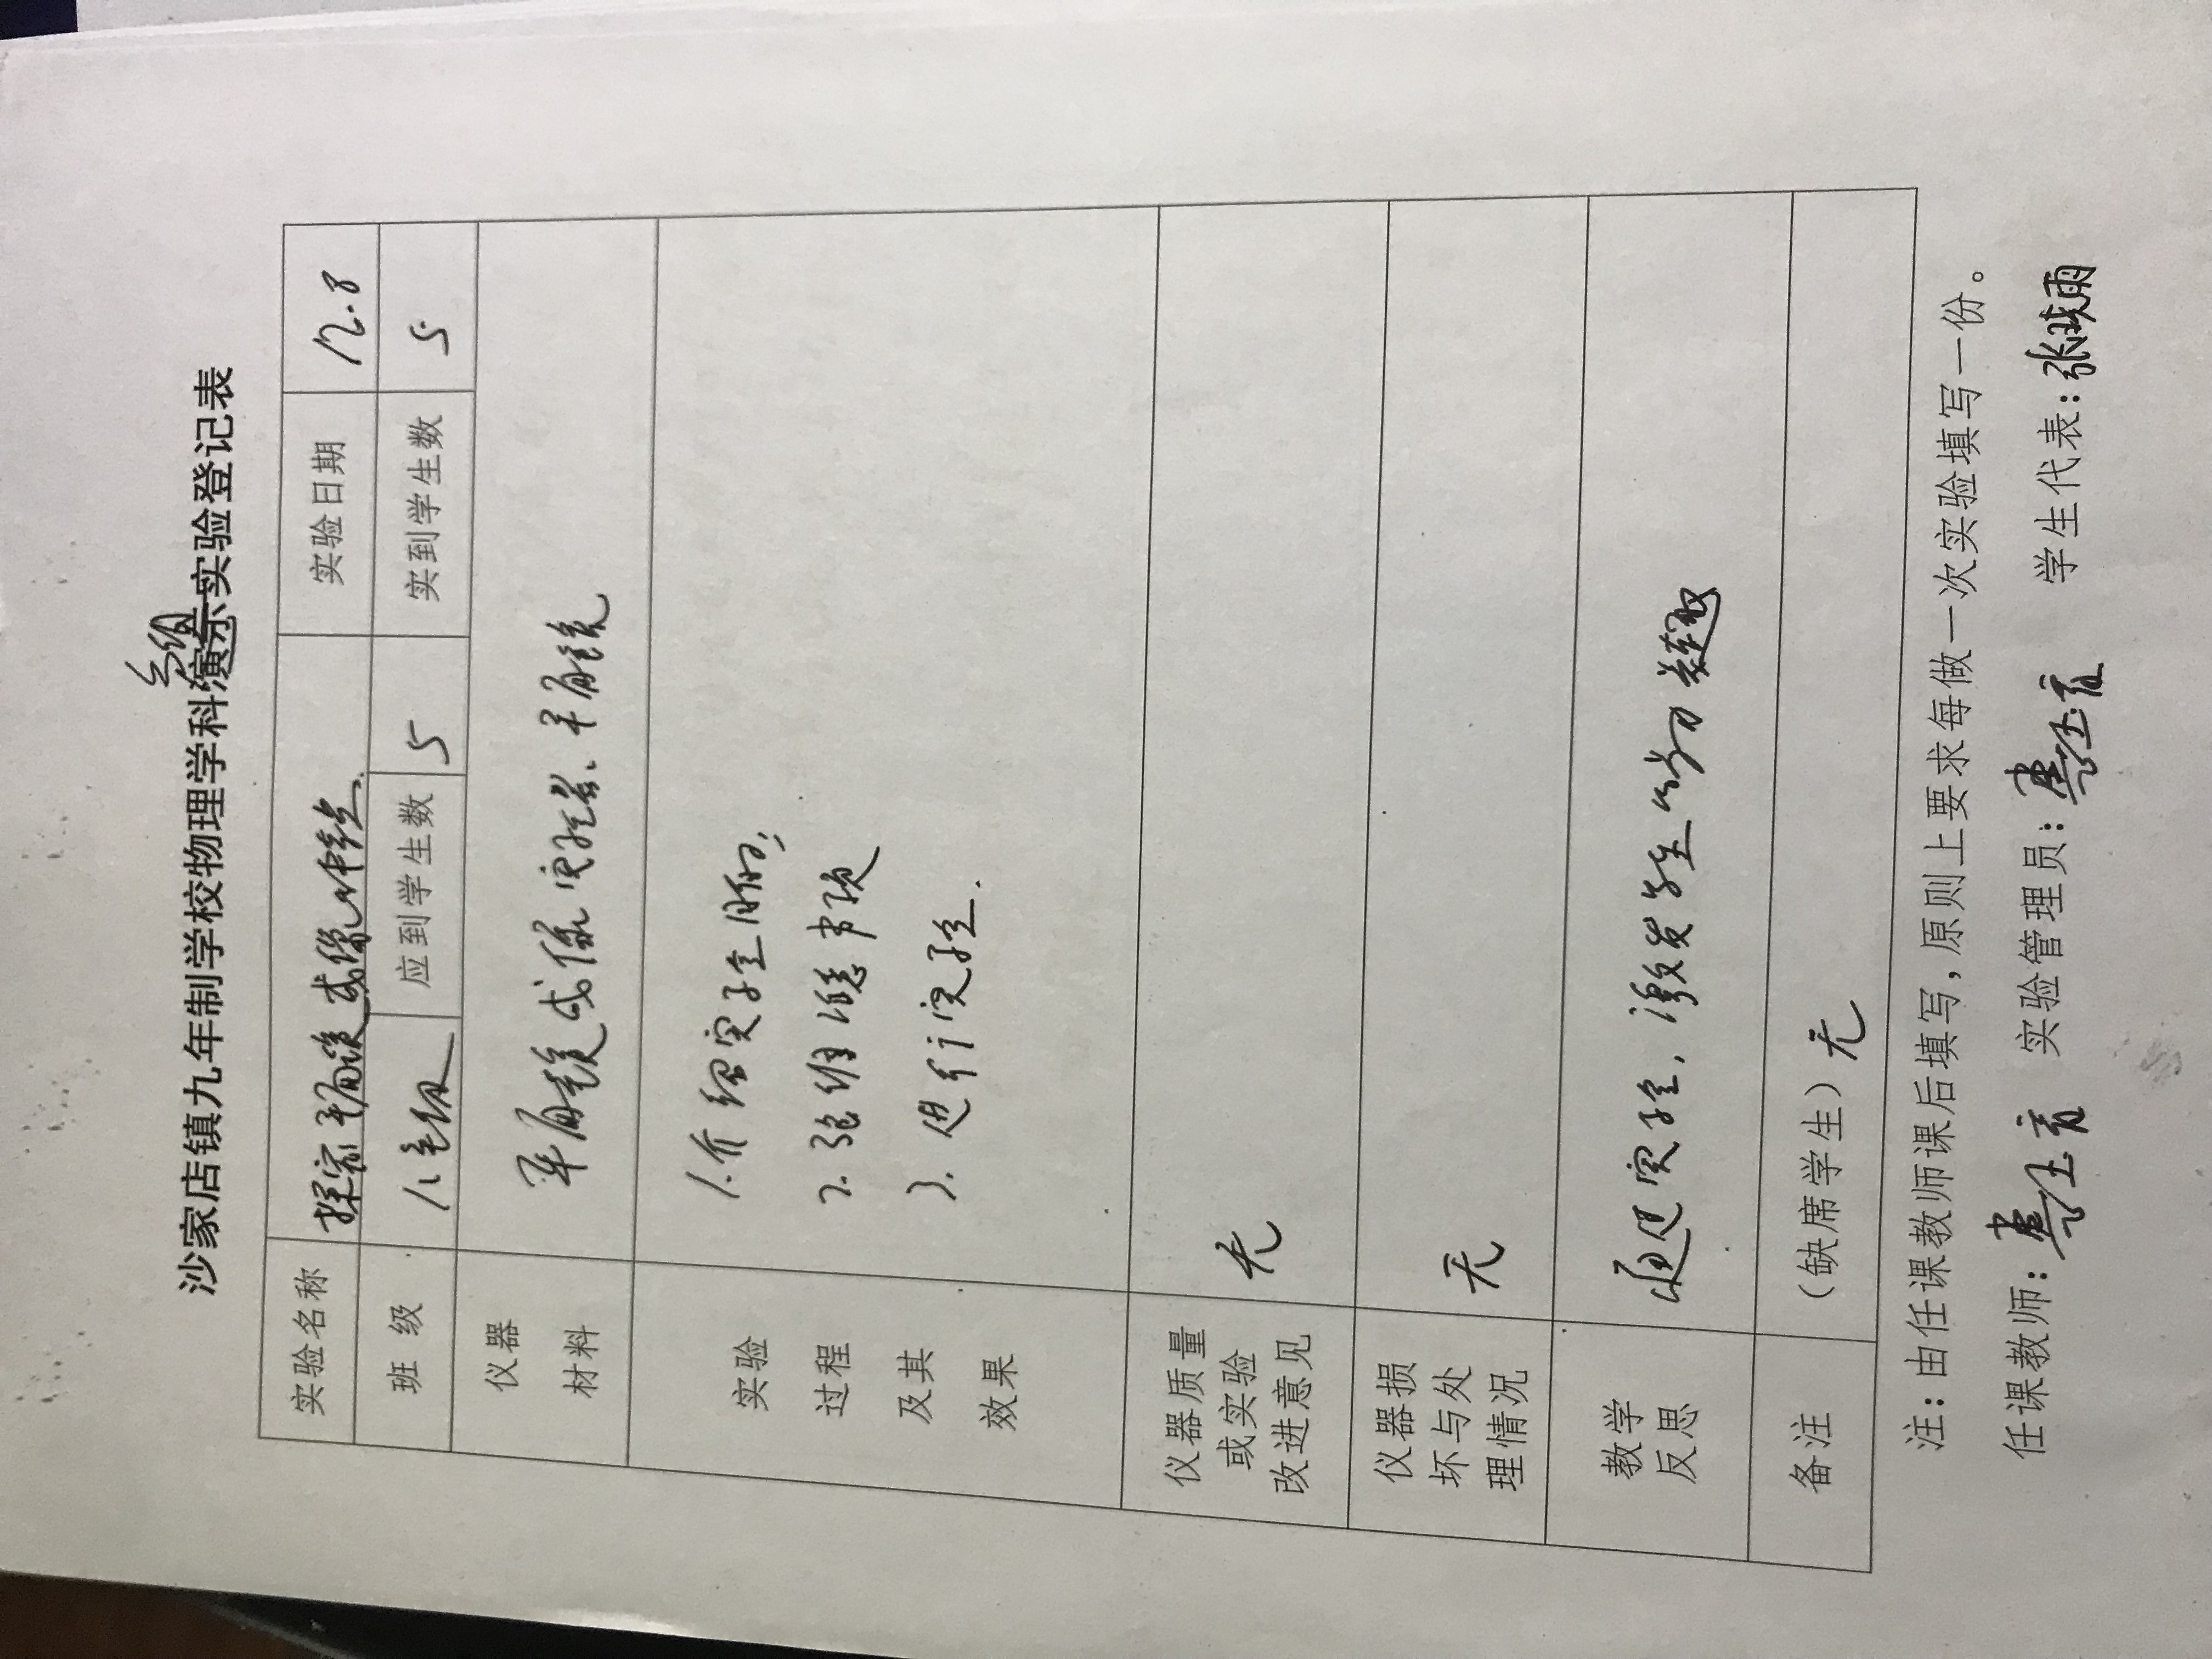 沙家店镇九年制学校物理学科演示实验登记表
分组
实验名称 探究平面镜成像的特点 实验日期 12.8
班 级 八年级 应到学生数 5 实到学生数 5
仪器 平面镜成像实验器、平面镜
材料
实验 1.介绍实验目的;
过程 2.强调注意事项
及其 3.进行实验.
效果
仪器质量
或实验 无
改进意见
仪器损
坏与处 无
理情况
教学 通过实验,激发学生学习兴趣
反思
备注 (缺席学生)无
注:由任课教师课后填写,原则上要求每做一次实验填写一份。
任课教师: 实验管理员: 学生代表:张 雨